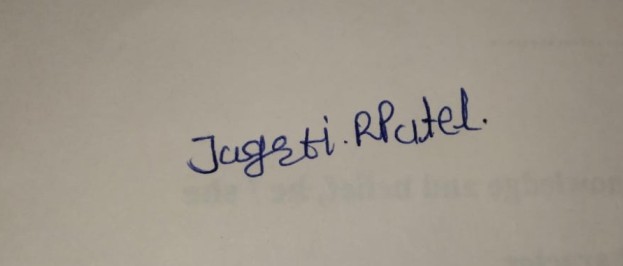 Jagrti. R Patel.